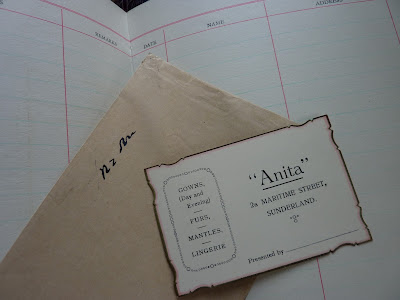 REMARKS
DATE
NAME
ADDRESS
GOWNS,
(Day and
Evening)
FURS,
MANTLES,
LINGERIE
"Anita"
2a MARITIME STREET,
SUNDERLAND.
Presented by